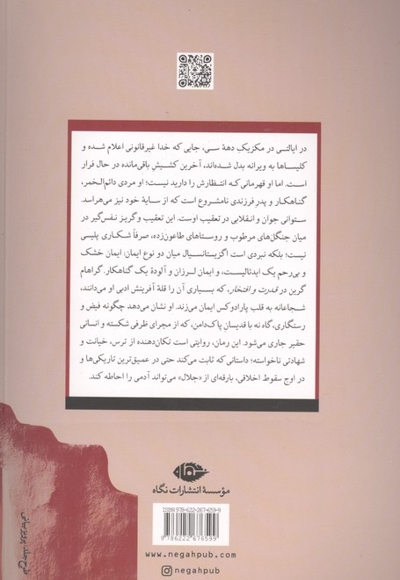 در ایالتی در مکزیکِ دههٔ سی، جایی که خدا غیرقانونی اعلام شده و
کلیساها به ویرانه بدل شده‌اند، آخرین کشیشِ باقی‌مانده در حال فرار
است. اما او قهرمانی که انتظارش را دارید نیست؛ او مردی دائم‌الخمر،
گناهکار و پدر فرزندی نامشروع است که از سایهٔ خود نیز می‌هراسد.
ستوانی جوان و انقلابی در تعقیب اوست. این تعقیب و گریز نفس‌گیر در
میان جنگل‌های مرطوب و روستاهای طاعون‌زده، صرفاً شکاری پلیسی
نیست؛ بلکه نبردی است اگزیستانسیال میان دو نوع ایمان: ایمان خشک
و بی‌رحم یک ایدئالیست، و ایمان لرزان و آلودهٔ یک گناهکار. گراهام
گرین در قدرت و افتخار، که بسیاری آن را قلهٔ آفرینش ادبی او می‌دانند،
شجاعانه به قلب پارادوکس ایمان می‌زند. او نشان می‌دهد چگونه فیض و
رستگاری، گاه نه با قدیسانِ پاک‌دامن، که از مجرای ظرفی شکسته و انسانی
حقیر جاری می‌شود. این رمان، روایتی است تکان‌دهنده از ترس، خیانت و
شهادتی ناخواسته؛ داستانی که ثابت می‌کند حتی در عمیق‌ترین تاریکی‌ها و
در اوج سقوط اخلاقی، بارقه‌ای از «جلال» می‌تواند آدمی را احاطه کند.
مؤسسهٔ انتشارات نگاه
ISBN 978-622-267-659-9
9 786222 676599
www.negahpub.com
negahpub